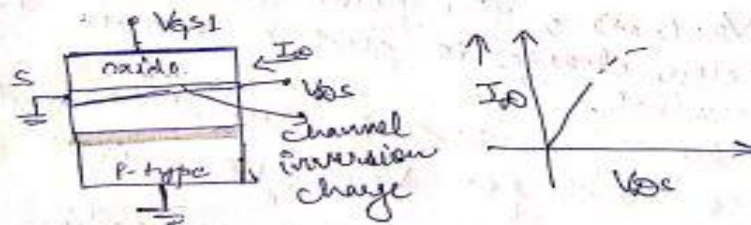 VGS1
oxide.
ID
S
VDS
channel
inversion
charge
P-type
ID
VDS